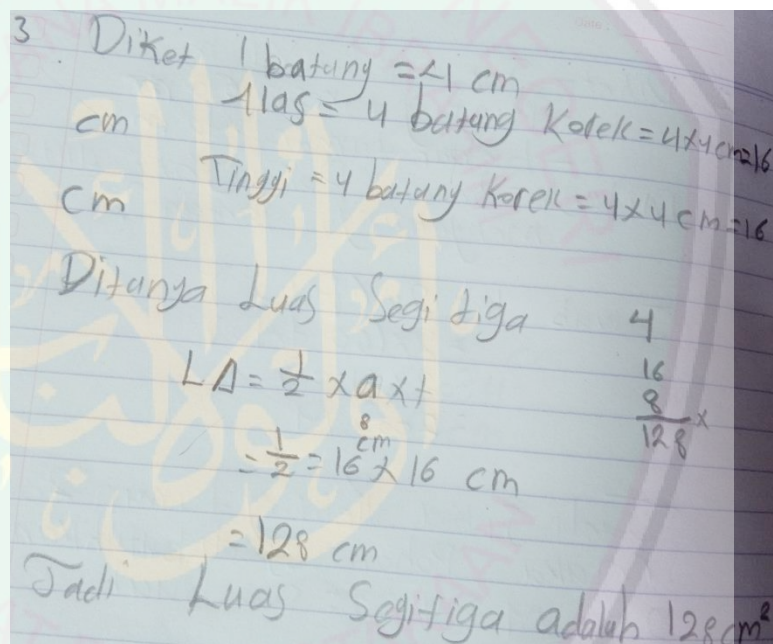 3. Diket 1 batang = 4 cm
Alas = 4 batang Korek = 4x4 cm=16
cm
Tinggi = 4 batang Korek = 4x4 cm=16
cm
Ditanya Luas Segitiga
4
16
8 x
128
LΔ = 1/2 x a x t
8
= 1/2 = 16 cm x 16 cm
= 128 cm
Jadi Luas Segitiga adalah 128 cm²